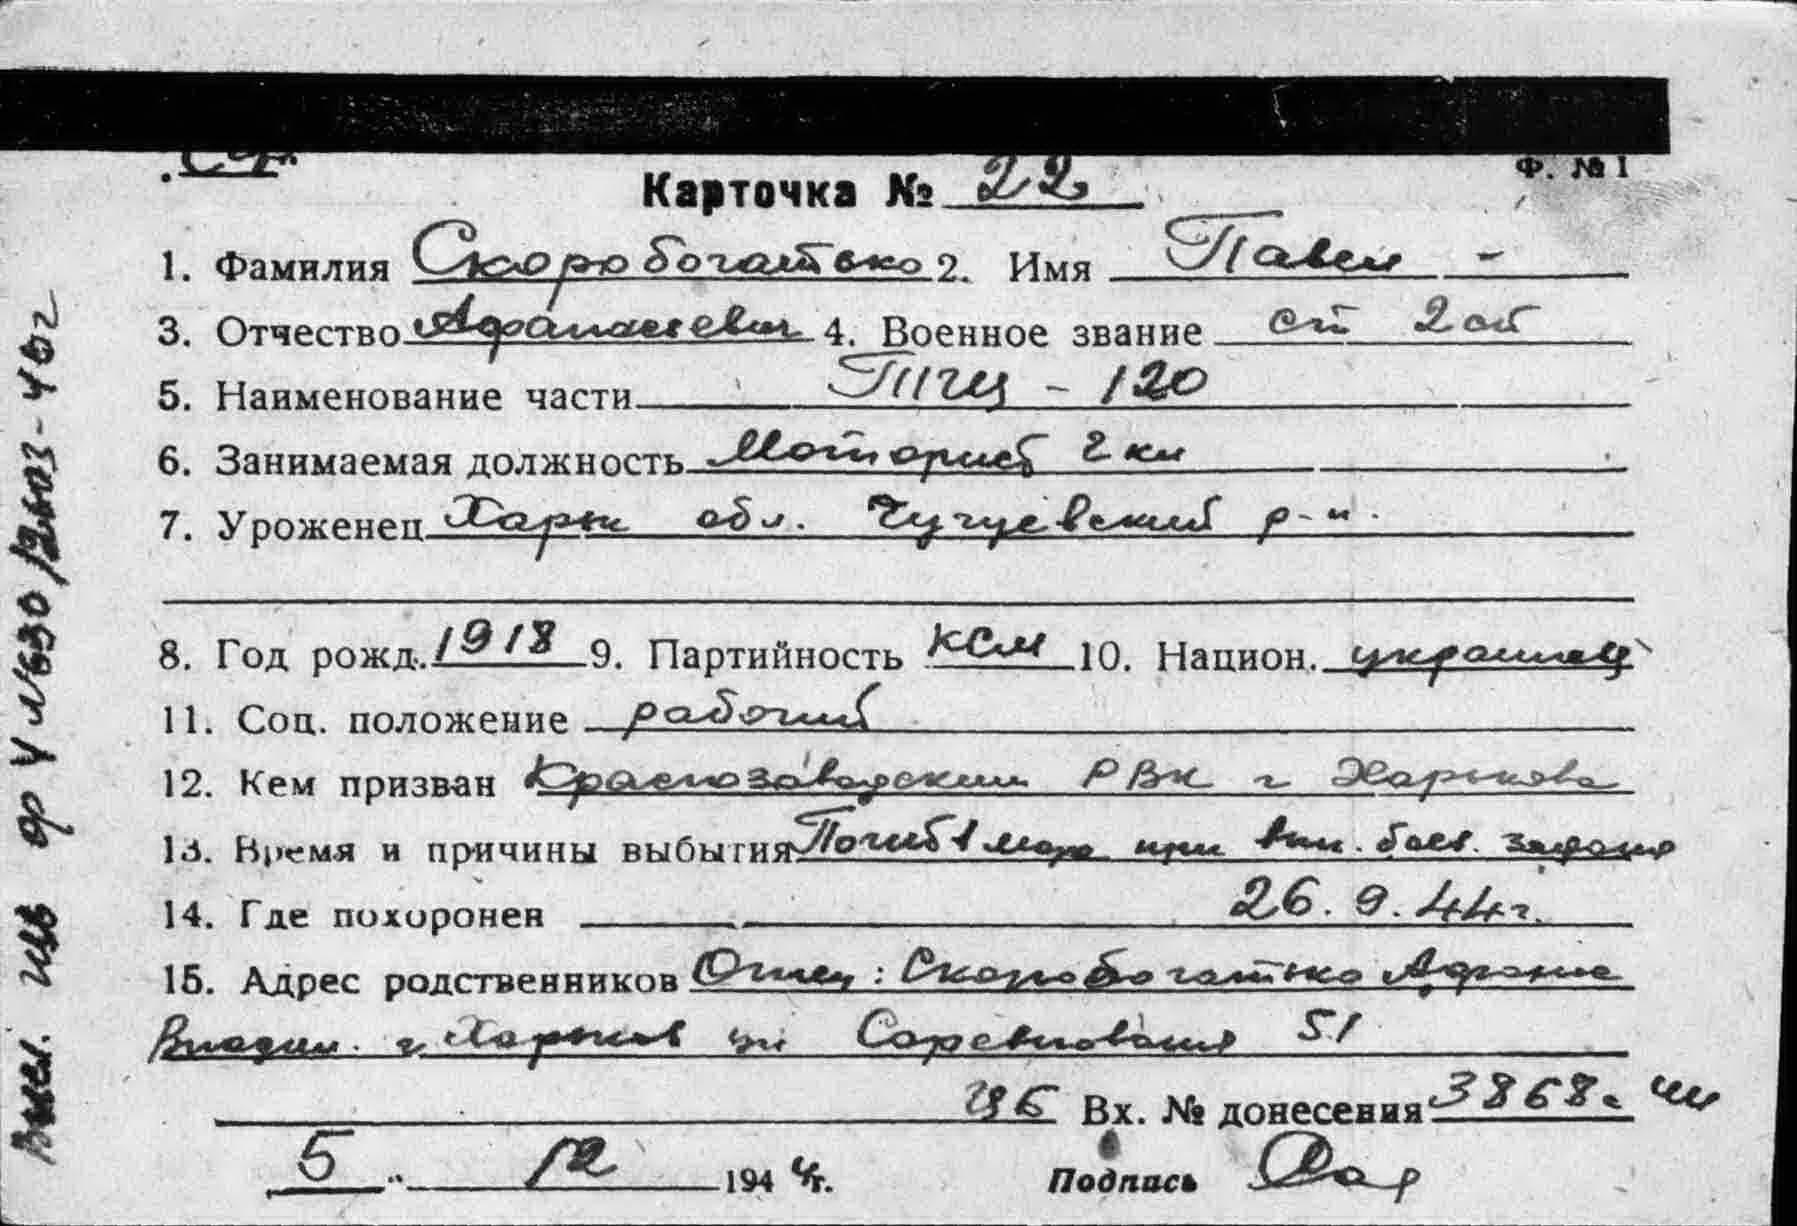 Ф. № 1
Карточка № 22
1. Фамилия Скоробогатько 2. Имя Павел -
3. Отчество Афанасьевич 4. Военное звание ст 2 ст
5. Наименование части ТЩ - 120
6. Занимаемая должность Моторист 2 кл
7. Уроженец Харьк обл. Чугуевский р-н.
8. Год рожд. 1918 9. Партийность КСМ 10. Национ. украинец
11. Соц. положение рабочий
12. Кем призван Краснозаводским РВК г Харькова
13. Время и причины выбытия Погиб в море при вып. боев. задания
14. Где похоронен 26.9.44г.
15. Адрес родственников Отец: Скоробогатько Афанас
Владим. г. Харьков ул Соревнования 51
Вх. № донесения 3868
5 " 12 1944г. Подпись